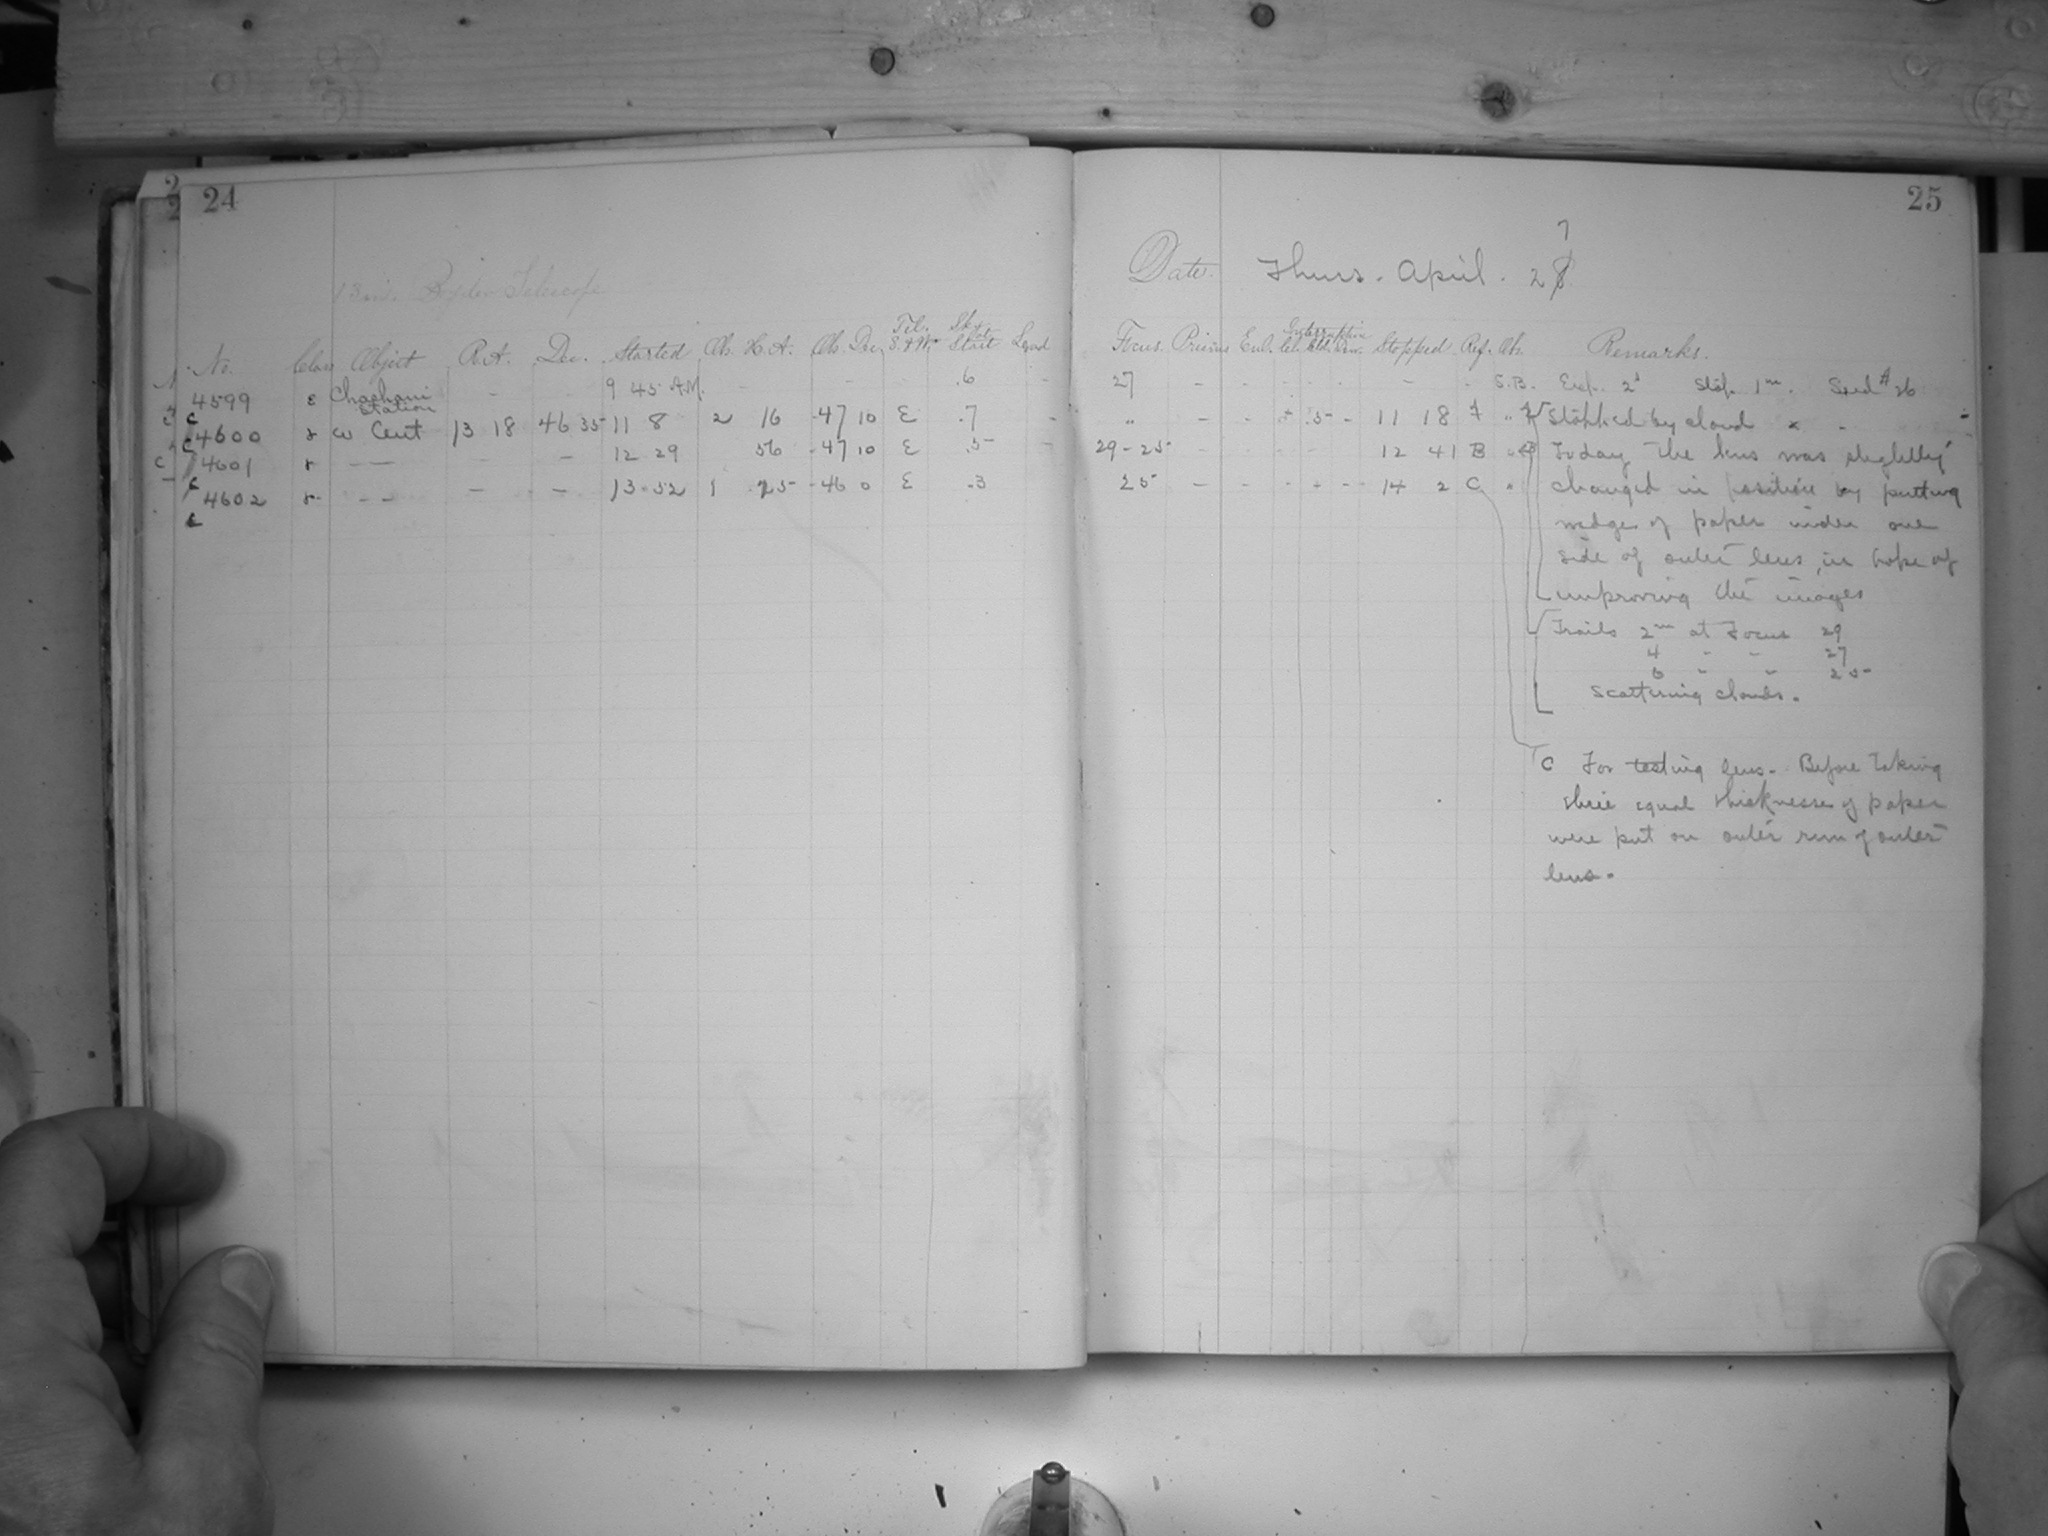 24
13 in. Boyden Telescope
No. Class Object R.A. Dec. Started Ob. H.A. Ob. Dec. Tel. E. or W. Sky at Start Load
4599 ε Chachani Station - - 9 45 A.M. - - - .6 -
C
4600 γ ω Cent 13 18 46 35 11 8 2 16 -47 10 E .7 -
C
4601 γ — — - — 12 29 56 -47 10 E .5 -
C
4602 γ - - - — 13 52 1 25 -46 0 E .3
C
25
7
Date. Thurs. April. 28
Focus Stopped Ref. Ob. Remarks.
27 - - - - - - - S.B. Exp. 2s Stop. 1 in. Seed # 26
" - - - .5 - 11 18 " Stopped by cloud
29-25 - - - - - 12 41 B " Today the lens was slightly
25 - - - - - 14 2 C " changed in position by putting
wedge of paper under one
side of outer lens, in hope of
improving the images
Trails 2m at Focus 29
4 - - 27
6 - - 25
Scattering clouds.
C For testing lens. Before taking
three equal thicknesses of paper
were put on outer rim of outer
lens.